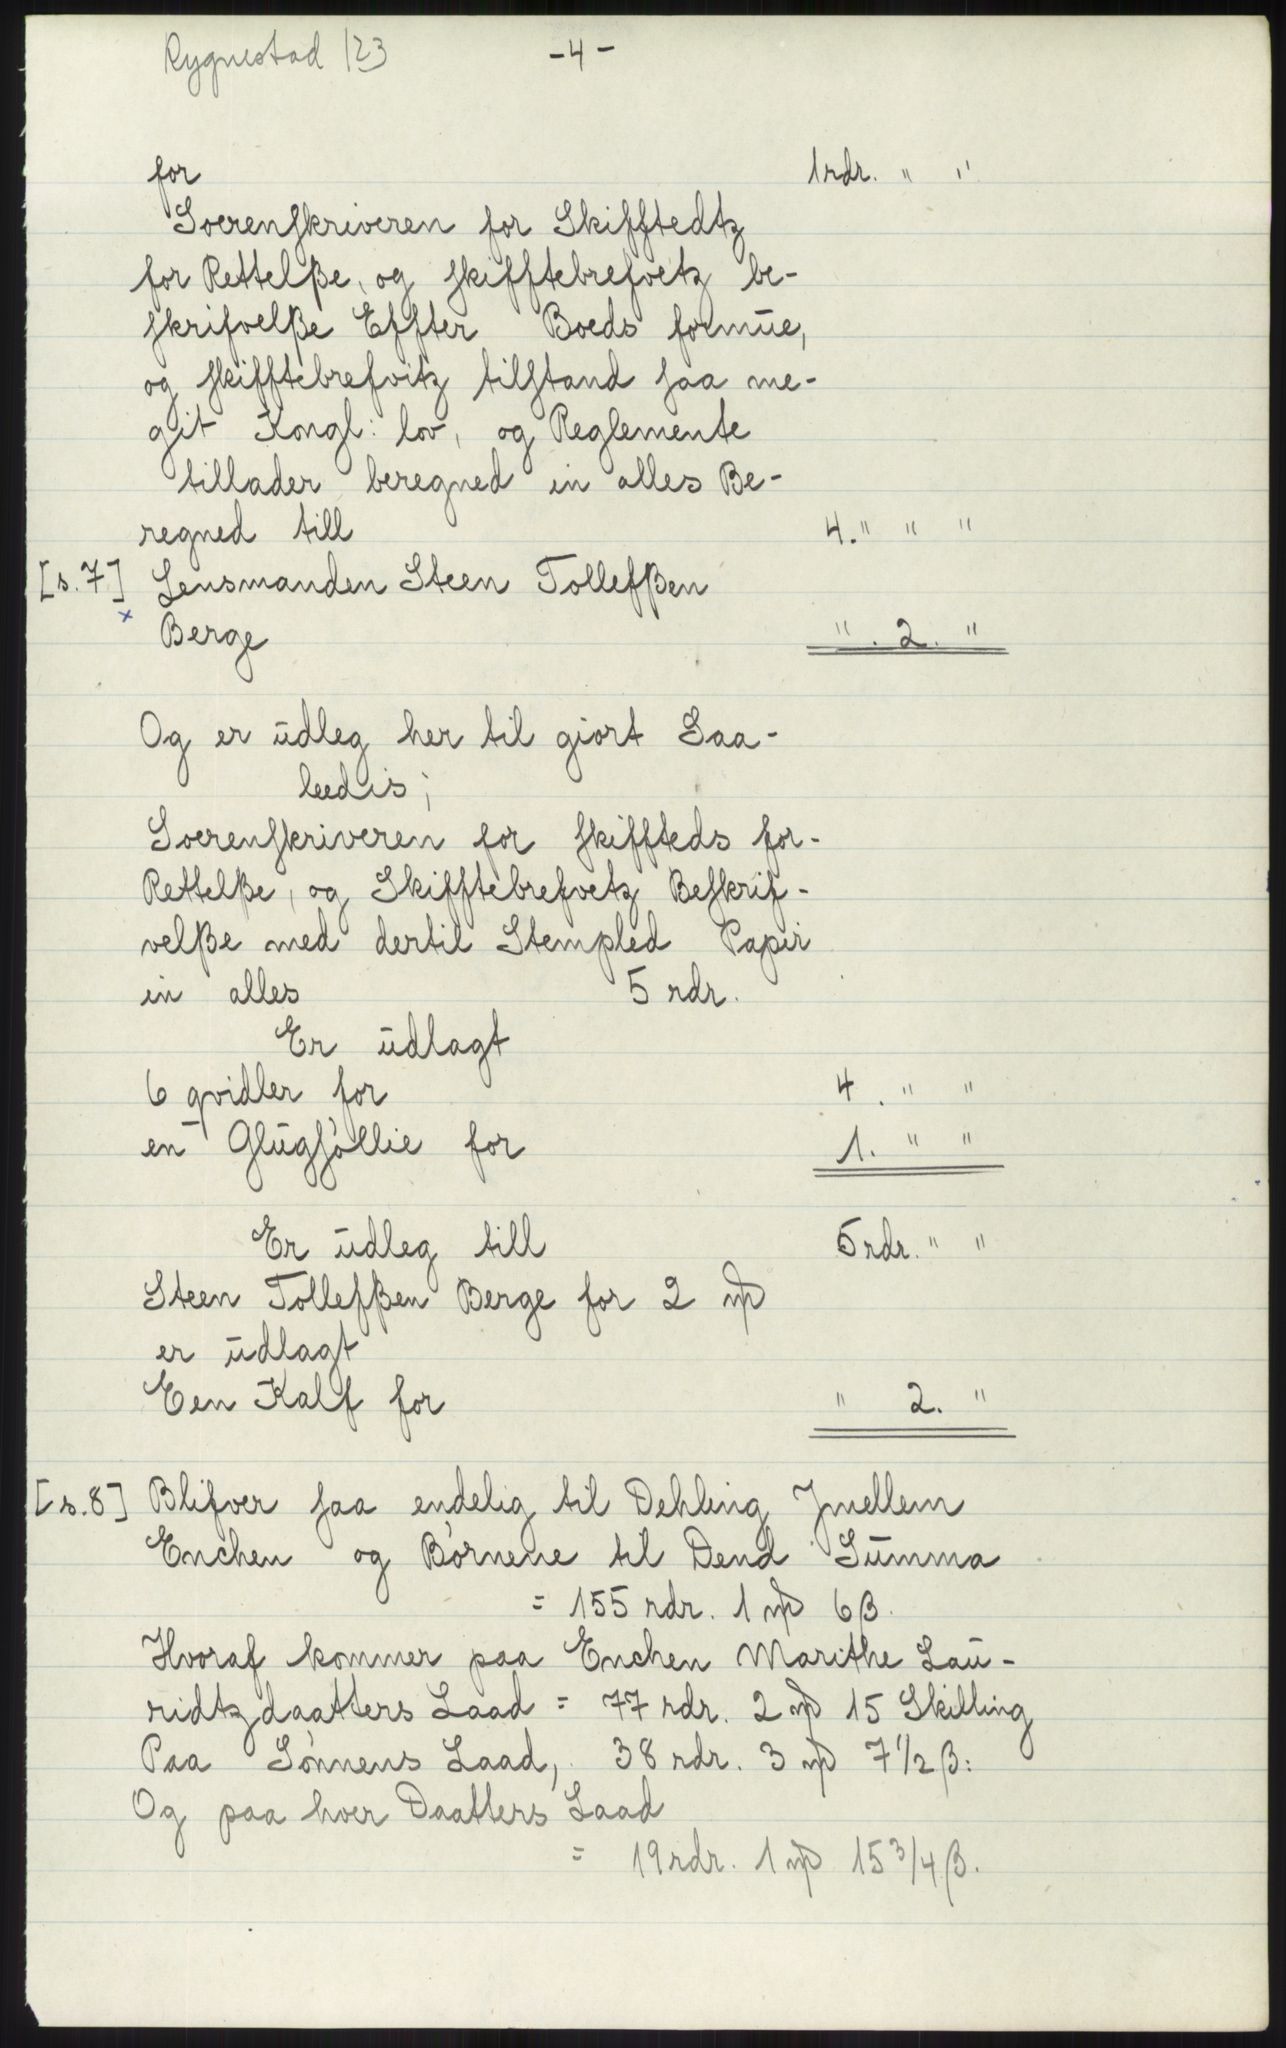 Rygnestad 123 -4-
for 1 rdr. " "
Soerenskriveren for Skifftedtz
for Rettelße, og skifftebrefvetz be-
skrifvelße Effter Boeds formūe,
og skifftebrefvitz tilstand saa me-
git Kongl: lov, og Reglemente
tillader beregned in alles Be-
regned till 4. " " "
[s. 7] Lensmanden Steen Tollefßen
x Berge " . 2. "
Og er ūdleg her til giort Saa-
leedis;
Soerenskriveren for skiffteds for-
Rettelße, og Skifftebrefvetz Beskrif-
velße med dertil Stempled Papir
in alles 5 rdr.
Er ūdlagt
6 qvidler for 4 . " "
en Glūgfjøllie for 1. " "
Er ūdleg till 5 rdr. " "
Steen Tollefßen Berge for 2 mþ
er ūdlagt
Een Kalf for " 2. "
[s. 8] Blifver saa endelig til Dehling Jmellem
Enchen og Børnene til Dend Sūmma
= 155 rdr. 1 mþ 6 β.
Hvoraf kommer paa Enchen Marithe Laū-
ridtzdaatters Laad = 77 rdr. 2 mþ 15 Skilling
Paa Sønnens Laad, 38 rdr. 3 mþ 7 1/2 β:
Og paa hver Daatters Laad
= 19 rdr. 1 mþ 15 3/4 β.